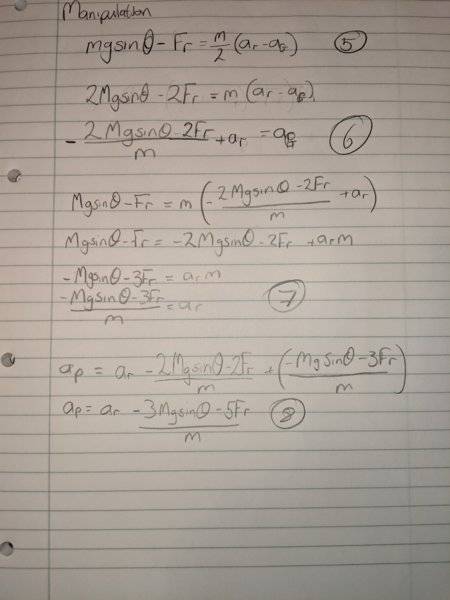 Manipulation
mgsinθ - Fr = m/2 (ar - aG) (5)
2Mgsinθ - 2Fr = m (ar - aG)
- (2Mgsinθ - 2Fr)/m + ar = aG (6)
MgSinθ - Fr = m (- (2Mgsinθ - 2Fr)/m + ar)
MgSinθ - Fr = -2Mgsinθ - 2Fr + arm
-Mgsinθ - 3Fr = arm
(-Mgsinθ - 3Fr)/m = ar (7)
ap = ar - (2Mgsinθ - 2Fr)/m + ((-MgSinθ - 3Fr)/m)
ap = ar - (3Mgsinθ - 5Fr)/m (8)